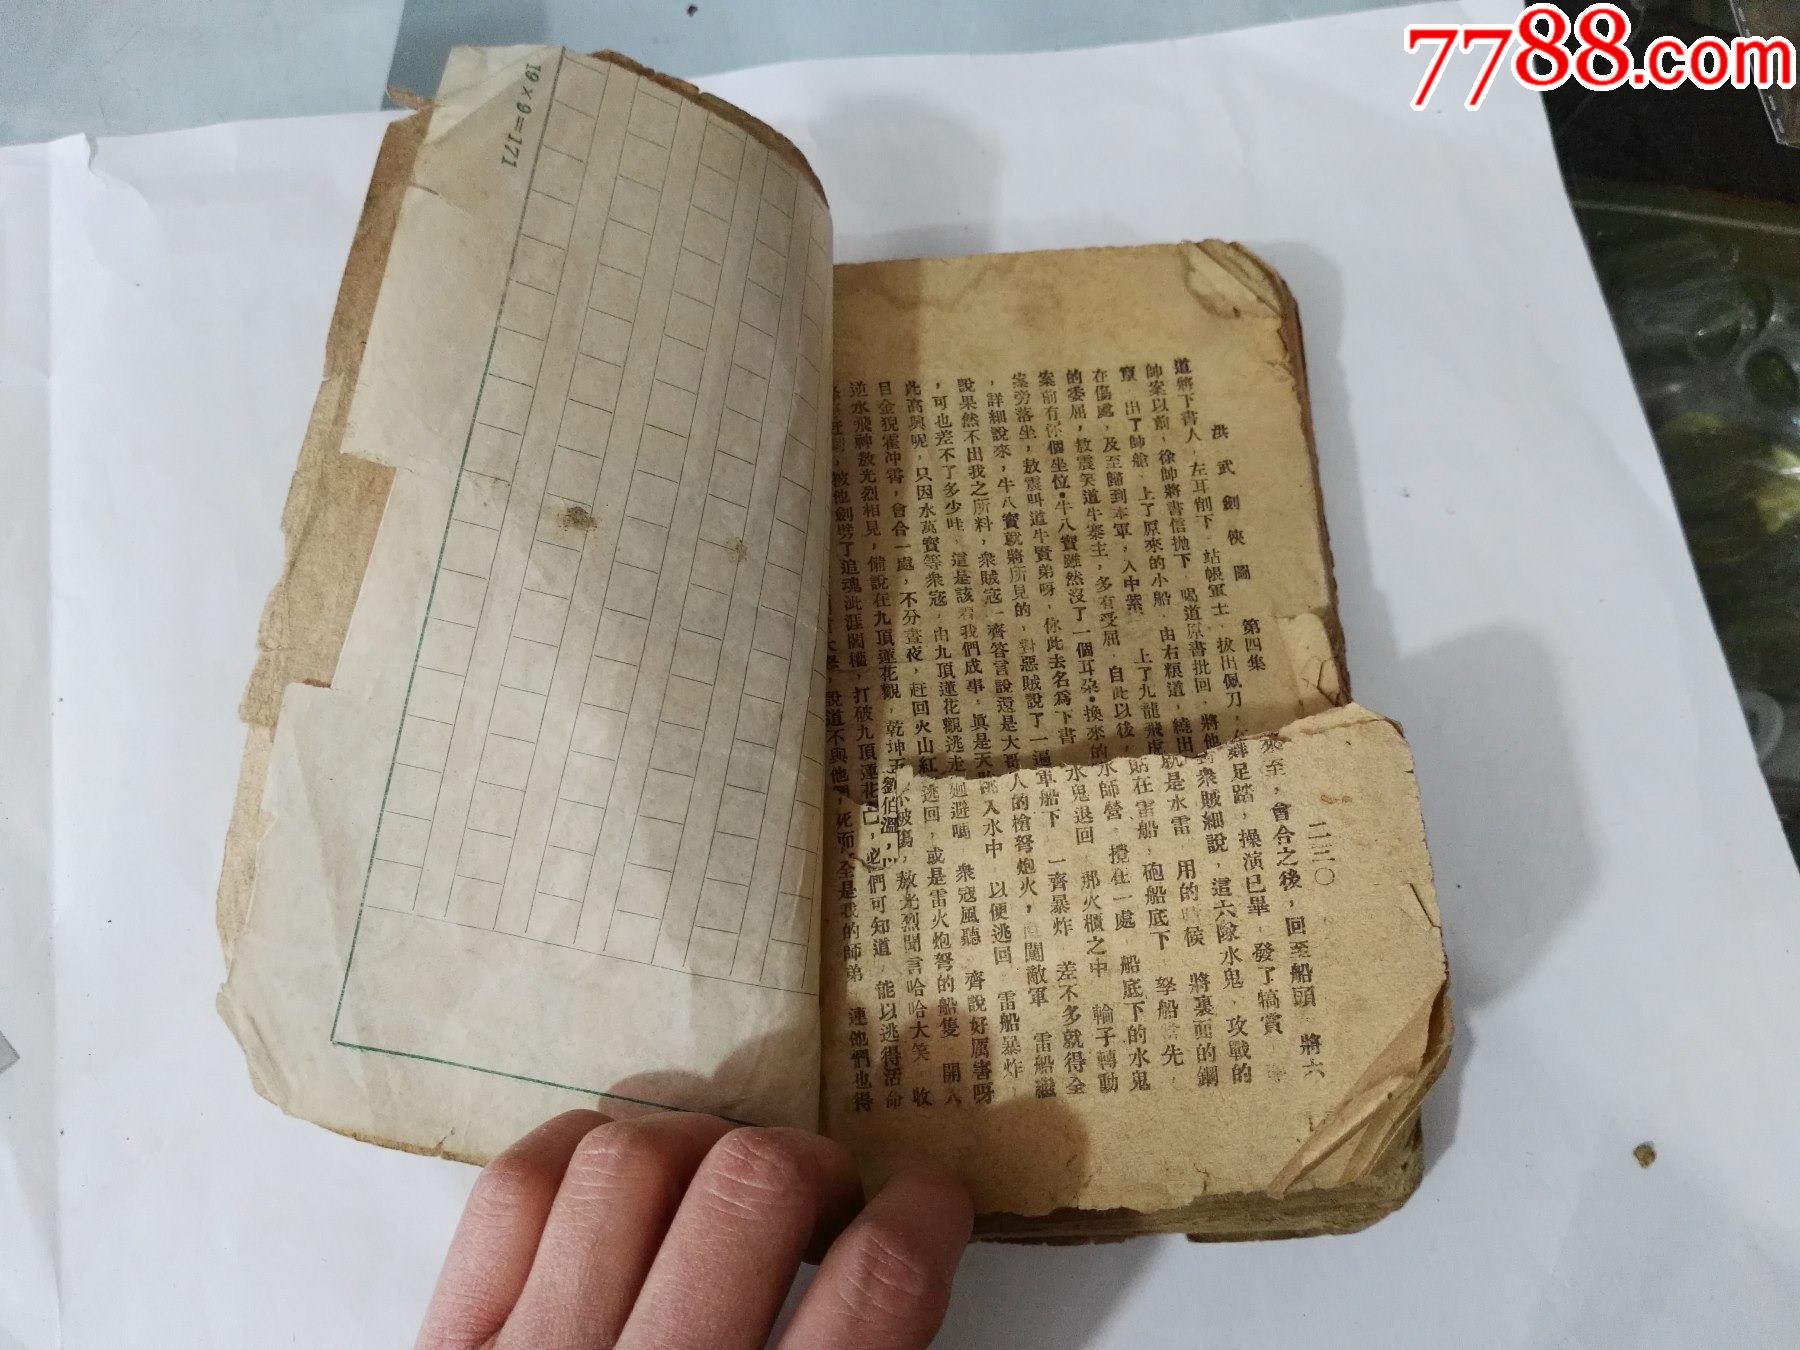 7788.com
19×9=171
洪武劍俠圖　第四集
二三〇
道將下書人，左耳削下，站帳軍士，拔出佩刀，
帥案以前，徐帥將書信拋下，喝道原書批回，將他
出了帥艙，上了原來的小船，由右糧道，繞出
在傷處，及至歸到本軍，入中紮，上了九龍飛虎
的委屈，敖震笑道牛寨主，多有受屈，自此以後，
案前有你個坐位·牛八寶雖然沒了一個耳朶·換來的
案旁落坐，敖震叫道牛賢弟呀，你此去名為下書
，詳細說來，牛八寶就將所見的，對惡賊說了一遍
說果然不出我之所料，衆賊寇一齊答言說還是大哥
，可也差不了多少哇，這是該着我們成事，眞是天
此高興呢，只因水萬寶等衆寇，由九頂蓮花觀逃走
目金猊霍冲霄，會合一處，不分晝夜，赶回火山紅
逆水飛神敖光烈相見，備說在九頂蓮花觀，乾坤
被他劍劈了追魂
打破九頂蓮花
說道不與他
來至，會合之後，回至船頭，將六
舞足踏，操演已畢，發了犒賞
衆賊細說，這六隊水鬼，攻戰的
就是水雷，用的時候　將裏面的鋼
貼在雷船，砲船底下　拏船當先，
水師營，攪在一處　船底下的水鬼
水鬼退回　那火櫃之中　輪子轉動
軍船下　一齊暴炸　差不多就得全
人的槍弩炮火，闖敵軍　雷船繼
跳入水中　以便逃回　雷船暴炸，
迴避嗎　衆寇風聽　齊說好厲害呀
逃回，或是雷火炮弩的船隻　開入
被傷，敖光烈聞言哈哈大笑　收
劉伯溫，
們可知道　能以逃得活命
死而　全是我的師弟　連他們也得